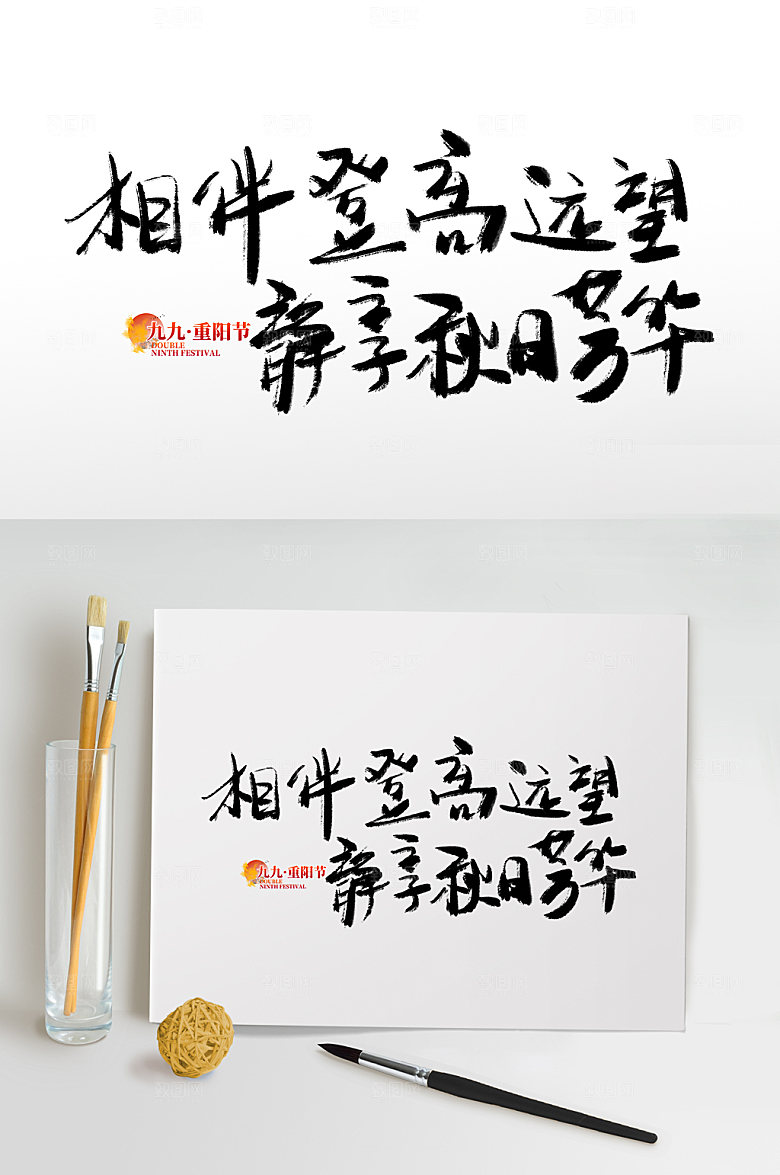 相伴登高远望
静享秋日芳华
九九·重阳节
DOUBLE
NINTH FESTIVAL
相伴登高远望
静享秋日芳华
九九·重阳节
DOUBLE
NINTH FESTIVAL